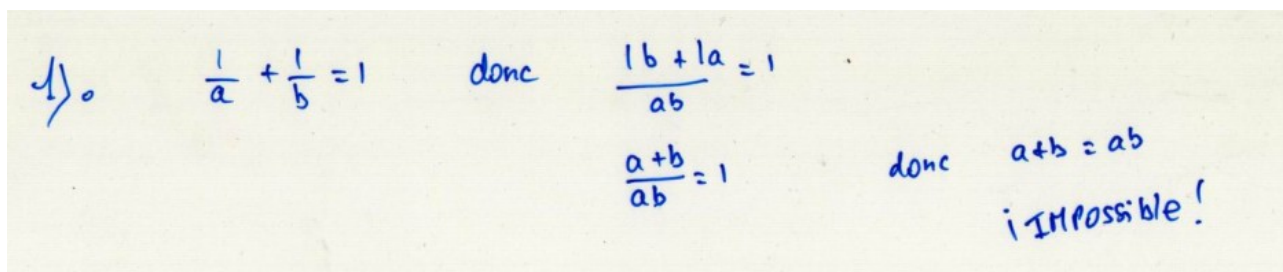 1). 1/a + 1/b = 1 donc (1b + 1a)/ab = 1
(a+b)/ab = 1 donc a+b = ab
¡IMPOSSible!